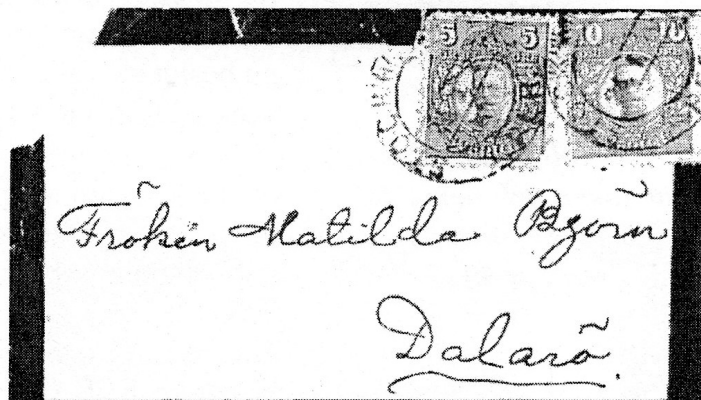 5 5
10 10
Fröken Matilda Björn
Dalarö.